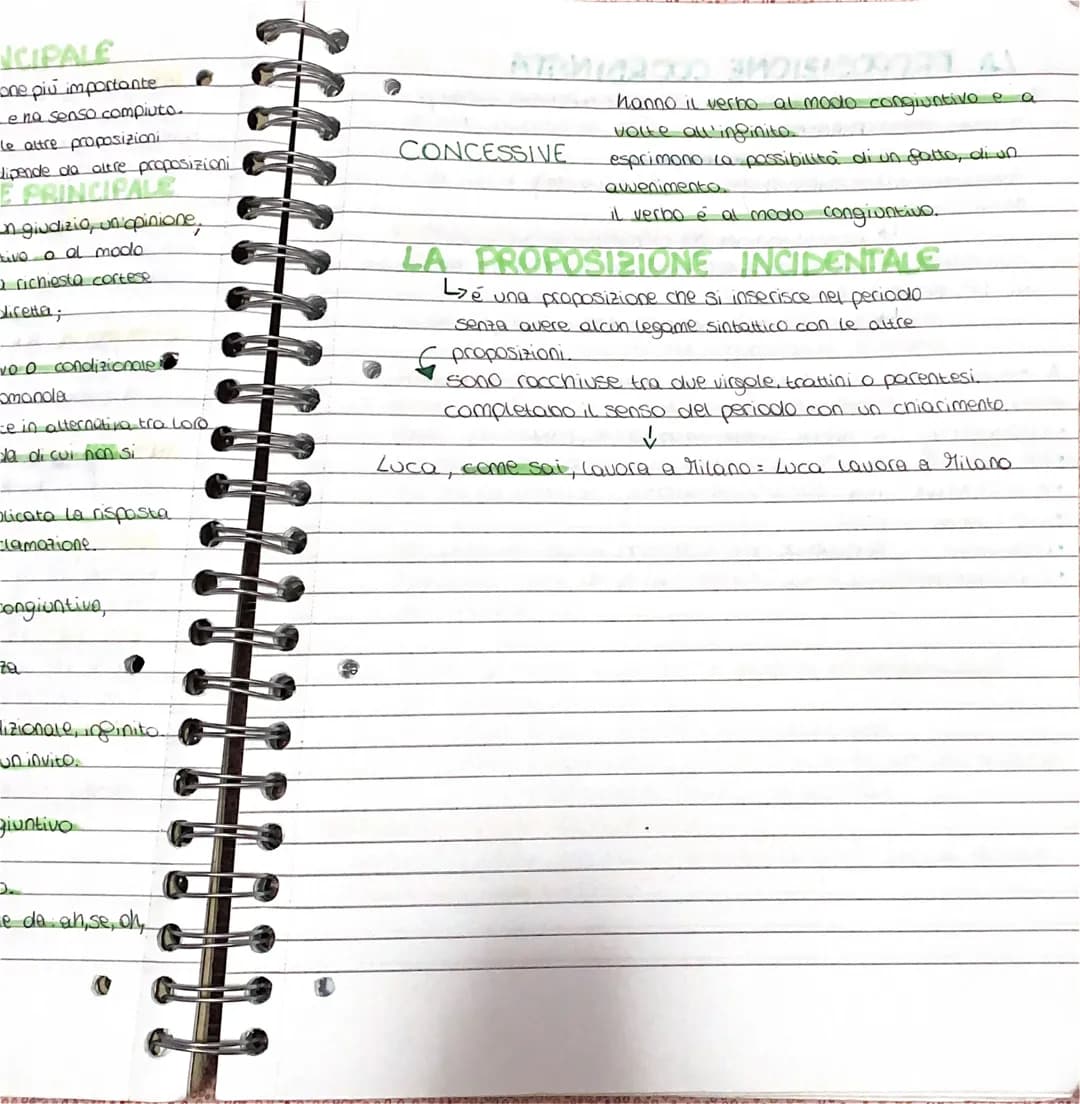 NCIPALE
one più importante
e ha senso compiuto.
le altre proposizioni
dipende da altre proposizioni
E PRINCIPALE
un giudizio, un'opinione,
tivo o al modo
a richiesta cortese
diretta;
vo o condizionale
omanda
te in alternativa tra loro
da di cui non si
plicata la risposta
clamazione.
congiuntivo,
za
dizionale, infinito.
un invito.
giuntivo
o.
e da: ah, se, oh,
hanno il verbo al modo congiuntivo e a
volte all'infinito.
CONCESSIVE esprimono la possibilità di un fatto, di un
avvenimento.
il verbo é al modo congiuntivo.
LA PROPOSIZIONE INCIDENTALE
↳ é una proposizione che si inserisce nel periodo
senza avere alcun legame sintattico con le altre
proposizioni.
sono racchiuse tra due virgole, trattini o parentesi.
completano il senso del periodo con un chiarimento.
↓
Luca, come sai, lavora a Milano = Luca lavora a Milano